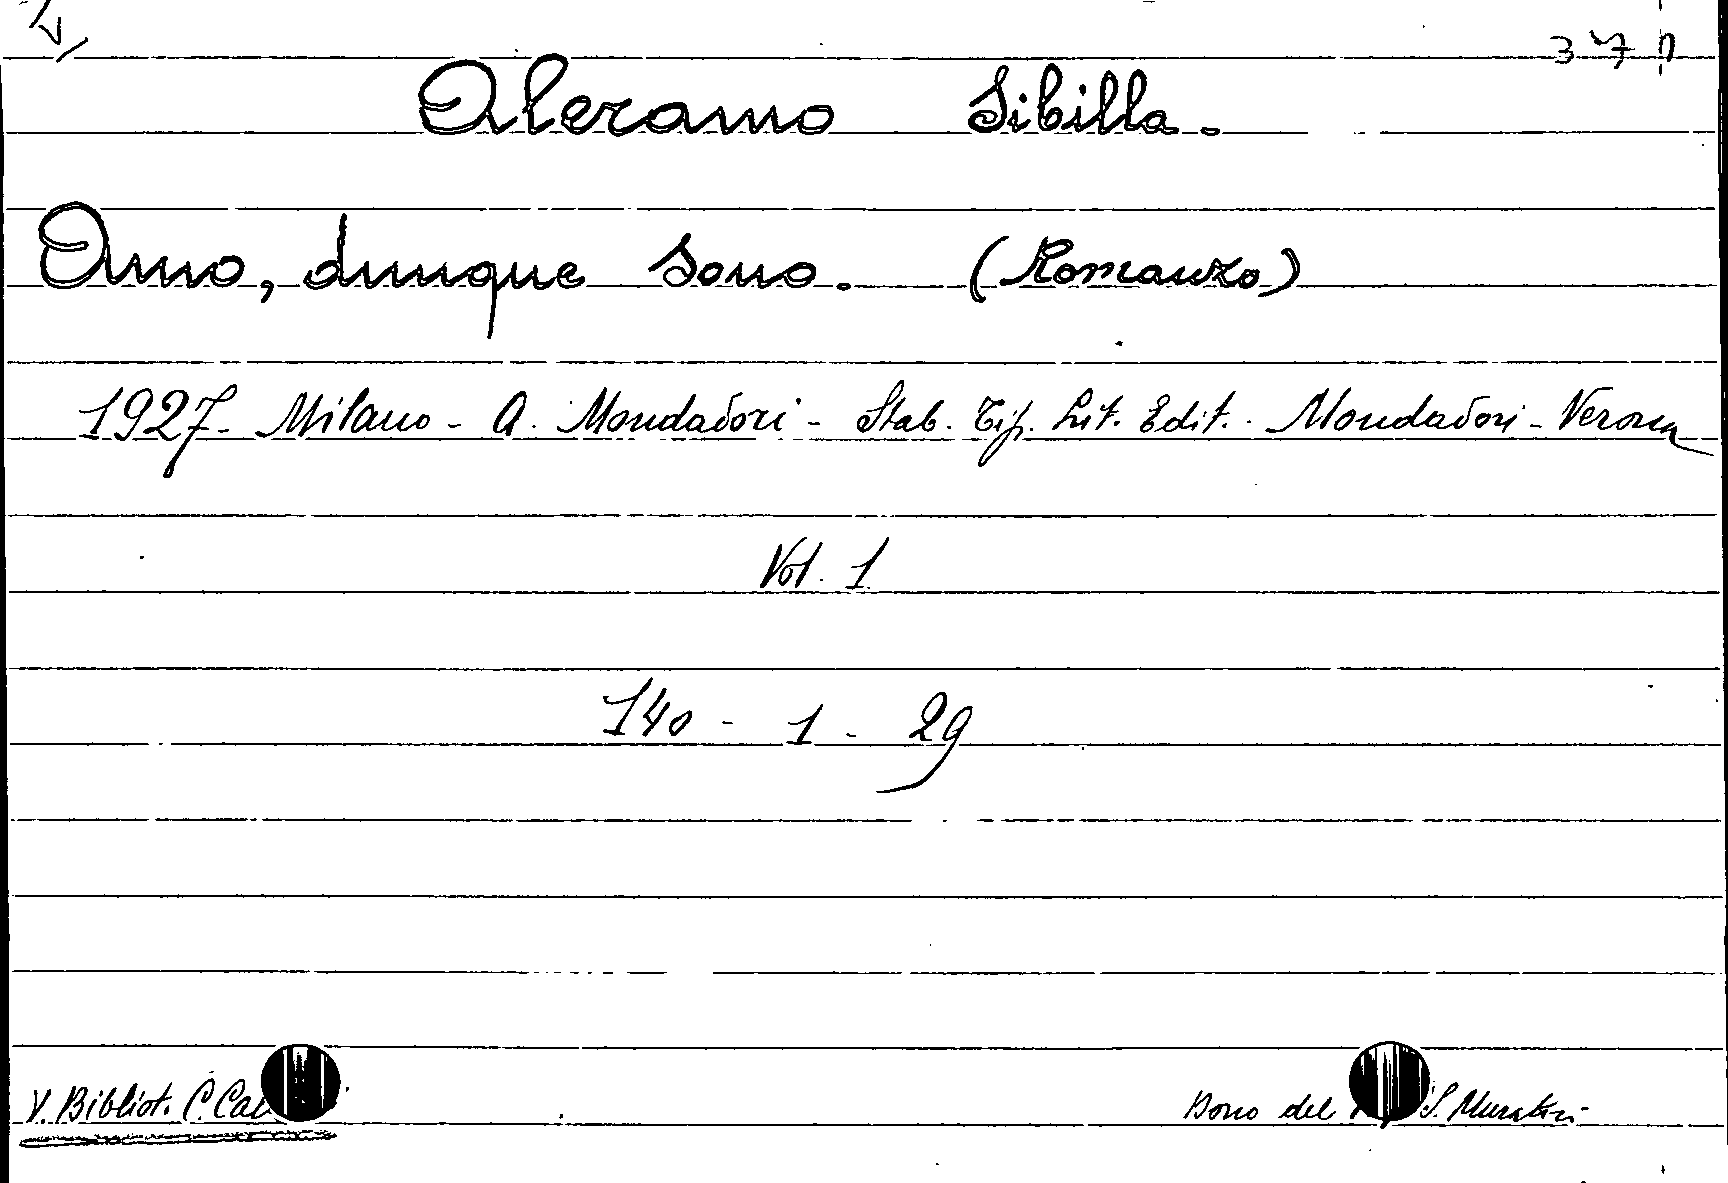 Aleramo Sibilla.
Amo, dunque sono. (Romanzo)
1927 - Milano - A. Mondadori - Stab. Tip. Lit. Edit. Mondadori - Verona
Vol. 1
140 - 1 - 29
V. Bibliot. C.
Dono del S. Muratori